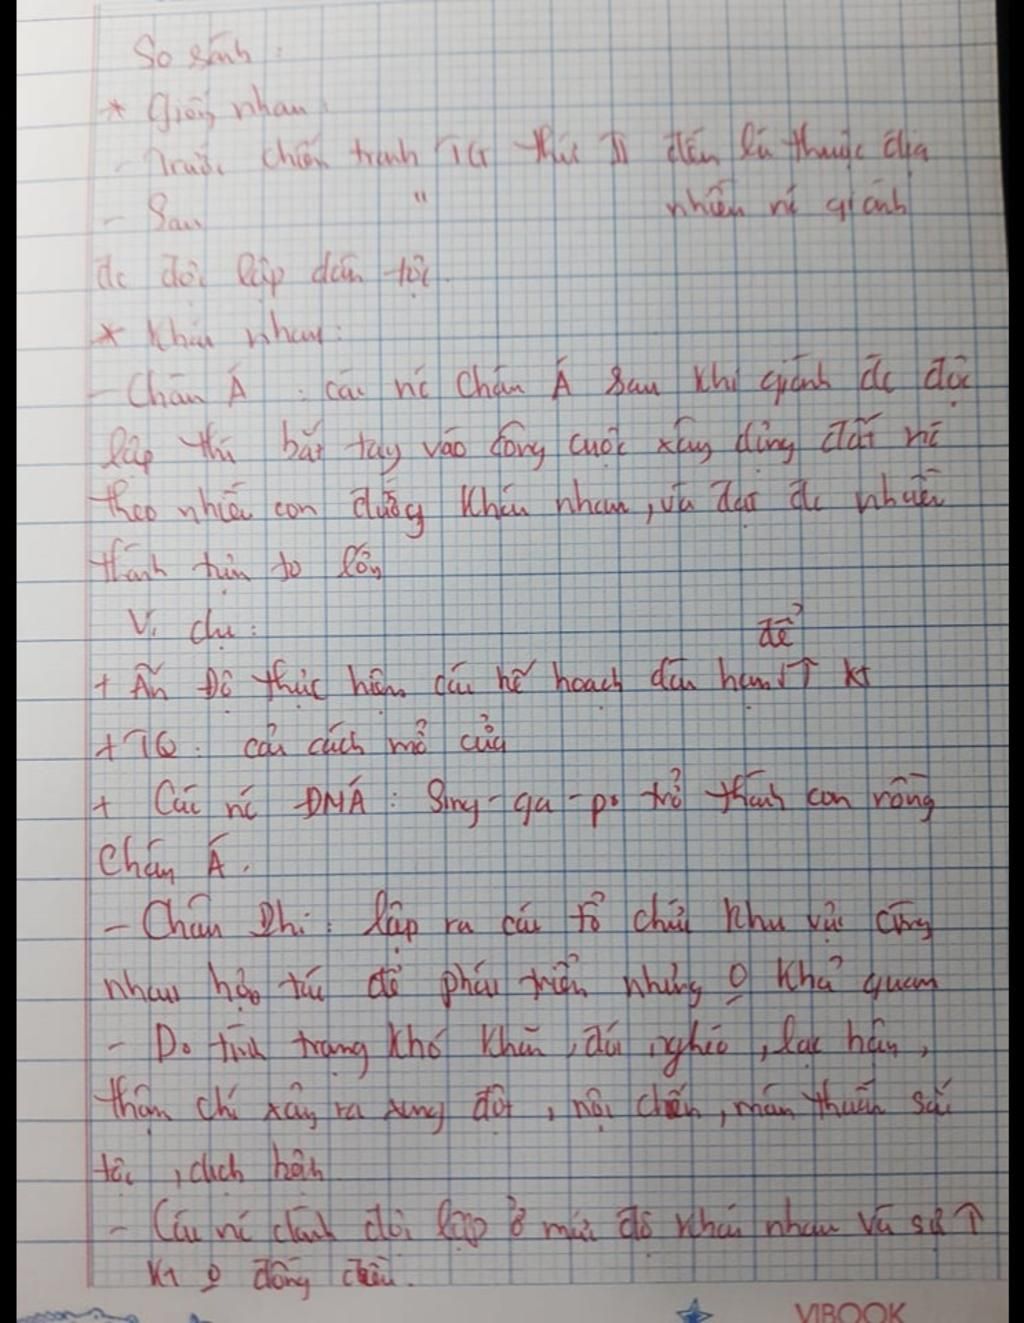 So sánh :
* Giống nhau :
- Trước chiến tranh TG thứ II đều là thuộc địa
- Sau " nhiều nc giành
đc độc lập dân tộc.
* Khác nhau :
- Châu Á : các nc Châu Á sau khi giành đc độc
lập thì bắt tay vào công cuộc xây dựng đất nc
theo nhiều con đường khác nhau, và đạt đc nhiều
thành tựu to lớn
Ví dụ :
để
+ Ấn Độ thực hiện các kế hoạch dài hạn ↑ kt
+ TQ : cải cách mở cửa
+ Các nc ĐNÁ : Sing-ga-po trở thành con rồng
Châu Á.
- Châu Phi : lập ra các tổ chức khu vực cùng
nhau hợp tác để phát triển nhưng o khả quan
- Do tình trạng khó khăn, đói nghèo, lạc hậu,
thậm chí xảy ra xung đột, nội chiến, mâu thuẫn sắc
tộc, dịch bệnh
- Các nc dành độc lập ở mức độ khác nhau và sự ↑
KT o đồng đều.
VIBOOK